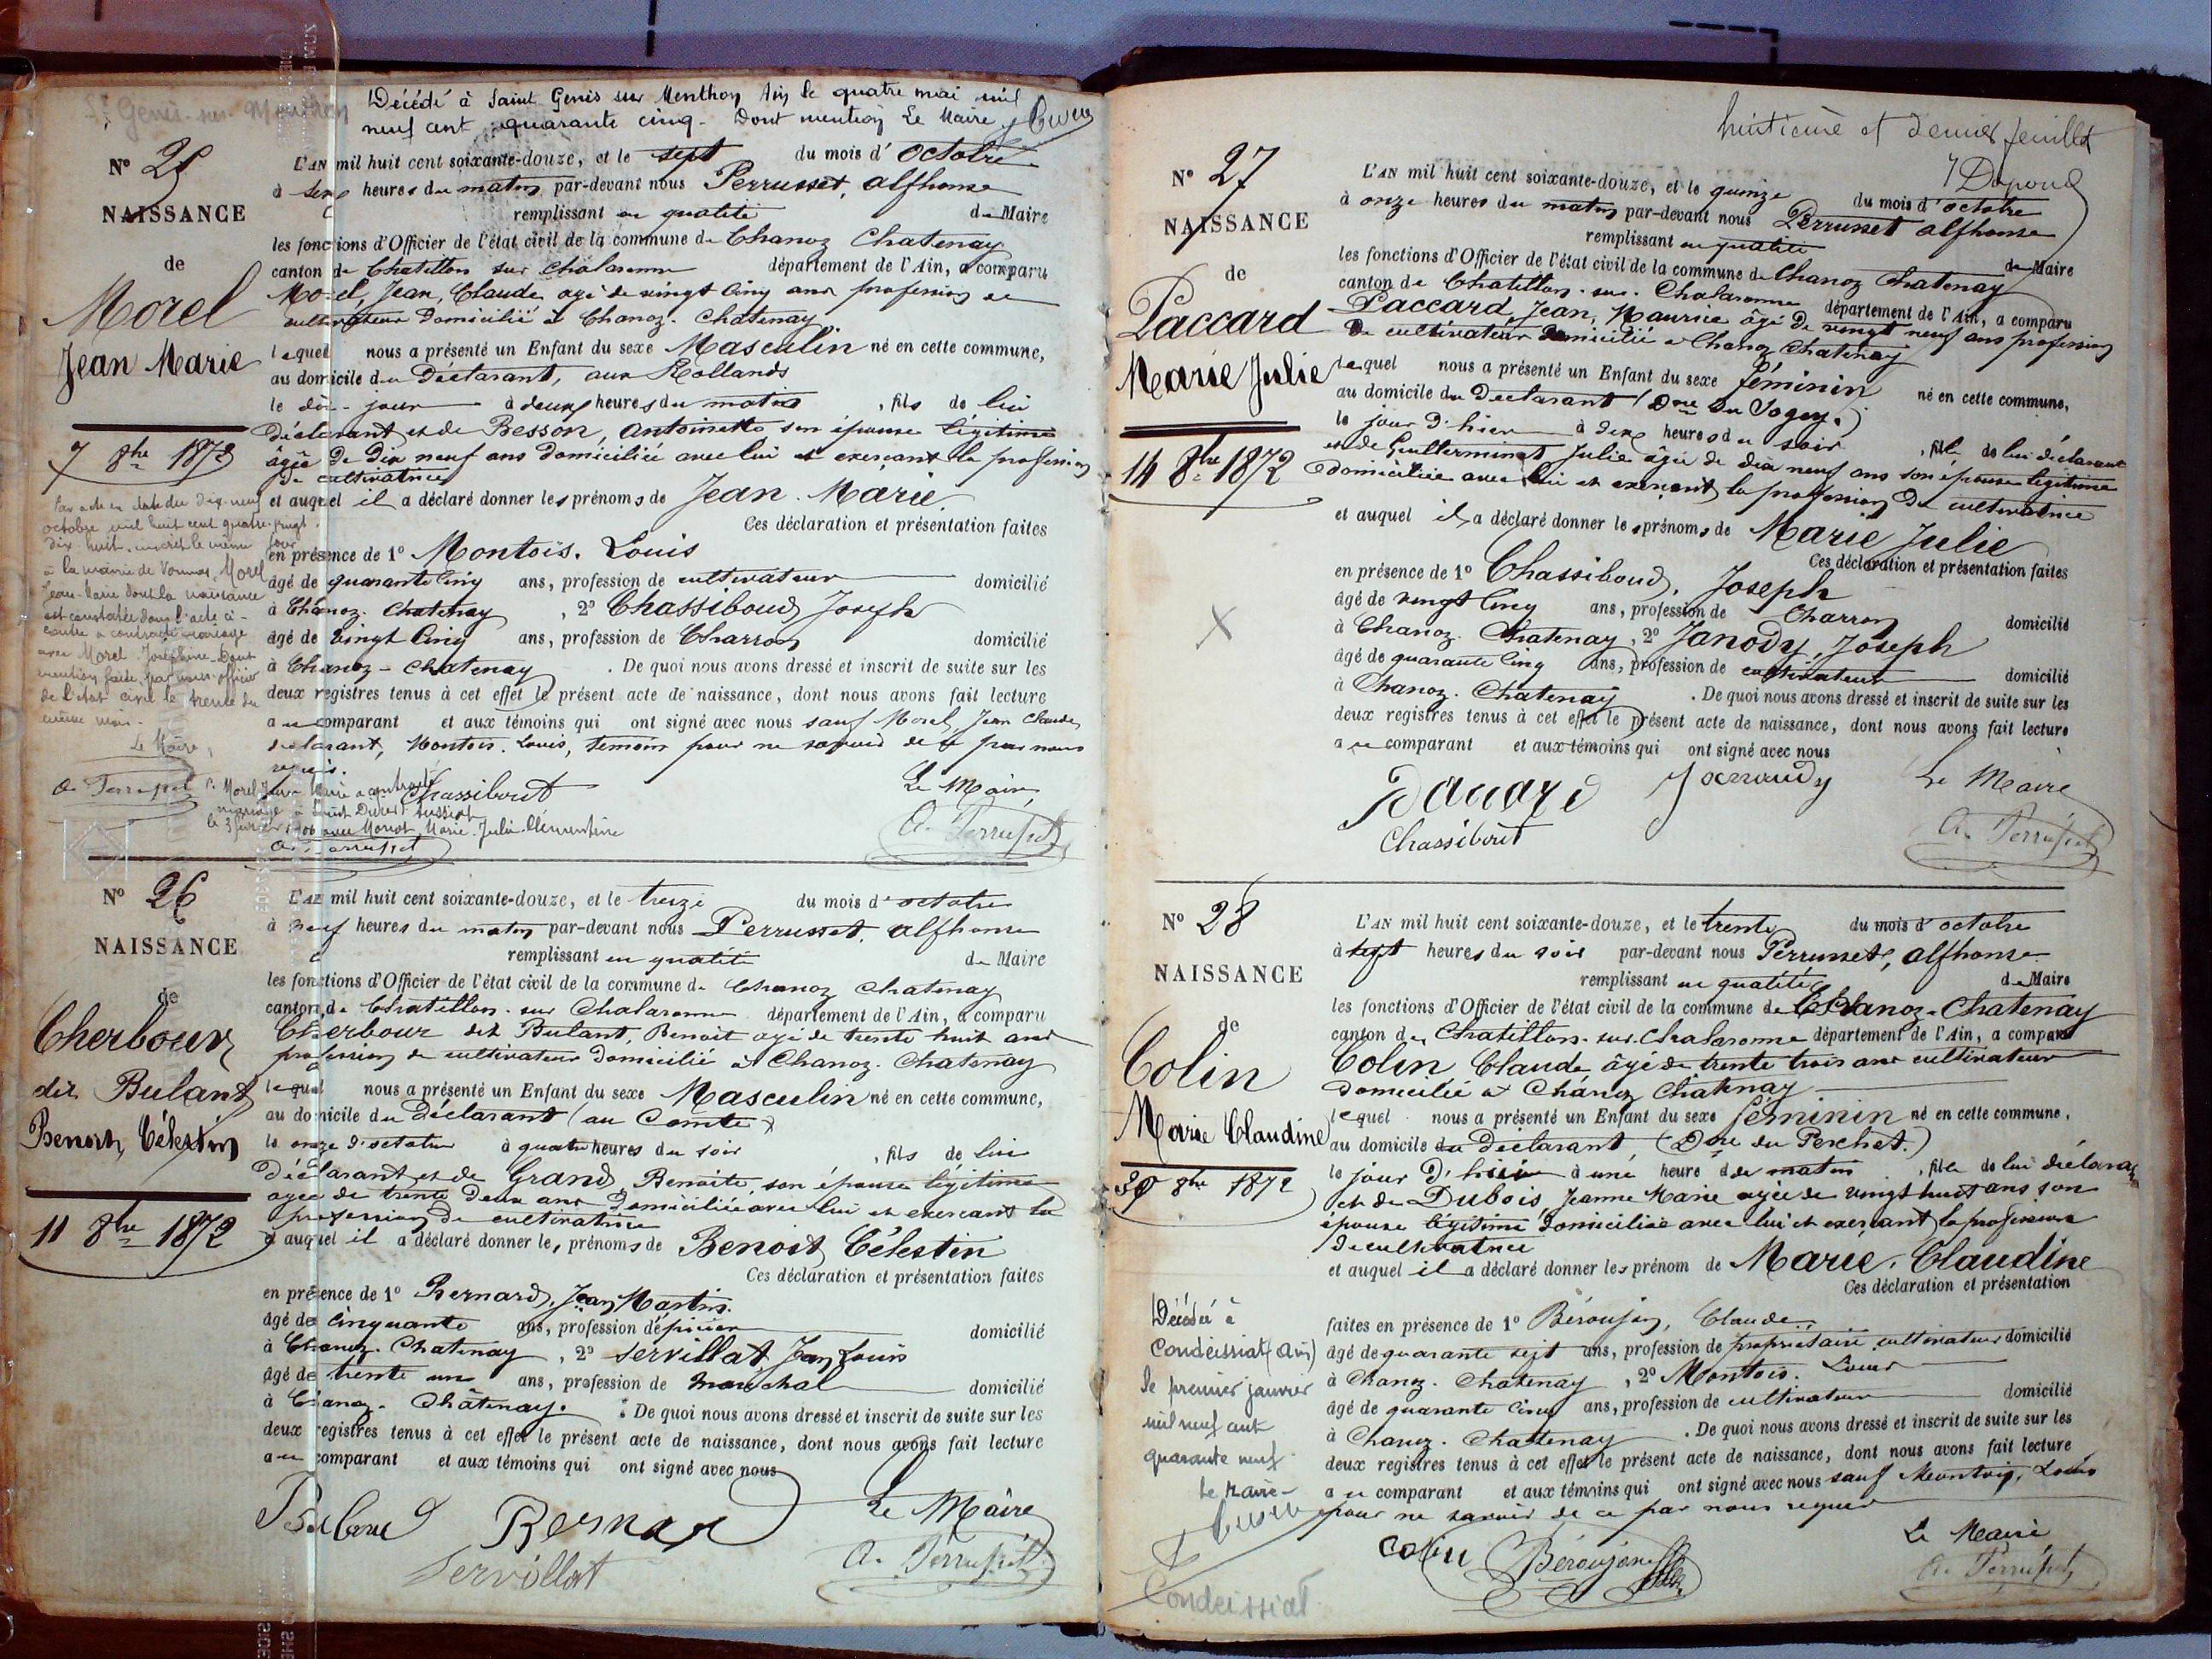 St Genis-sur-Menthon
Décédé à Saint Genis sur Menthon Ain le quatre mai mil
neuf cent quarante cinq. Dont mention Le Maire
N° 25
NAISSANCE
de
Morel
Jean Marie
7 8bre 1872
L'AN mil huit cent soixante-douze, et le sept du mois d'octobre
à heures du matin par-devant nous Perrusset, Alphonse
remplissant en qualité de Maire
les fonctions d'Officier de l'état civil de la commune de Chanoz Chatenay
canton de Chatillon sur Chalaronne département de l'Ain, a comparu
Morel, Jean, Claude agé de vingt cinq ans profession de
cultivateur domicilié à Chanoz-Chatenay
lequel nous a présenté un Enfant du sexe Masculin né en cette commune,
au domicile du Déclarant, aux Rollands
le dit jour à deux heures du matin, fils de lui
déclarant et de Besson, Antoinette son épouse légitime
âgée de dix neuf ans domiciliée avec lui et exerçant la profession
de cultivatrice
et auquel il a déclaré donner les prénoms de Jean Marie
Ces déclaration et présentation faites
en présence de 1° Montois, Louis
âgé de quarante cinq ans, profession de cultivateur domicilié
à Chanoz-Chatenay, 2° Chassiboud Joseph
âgé de vingt cinq ans, profession de Charron domicilié
à Chanoz-Chatenay. De quoi nous avons dressé et inscrit de suite sur les
deux registres tenus à cet effet le présent acte de naissance, dont nous avons fait lecture
au comparant et aux témoins qui ont signé avec nous sauf Morel, Jean Claude
déclarant, Montois Louis, témoin pour ne savoir de ce par nous
requis.
Par acte en date du dix-neuf
octobre mil huit cent quatre-vingt
dix-huit, inscrit le même jour
à la mairie de Vonnas, Morel
Jean-Marie dont la naissance
est constatée dans l'acte ci-
contre a contracté mariage
avec Morel Joséphine. Dont
mention faite par nous officier
de l'état civil le trente du
même mois.
Le Maire,
A. Perrusset
Morel Jean Marie a contracté
mariage à
le 3 février 1906 avec Marie-Julie Clémentine
A. Perrusset
Chassibout
Le Maire
A. Perrusset
N° 26
NAISSANCE
de
Cherbour
dit Bulant
Benoit, Célestin
11 8bre 1872
L'AN mil huit cent soixante-douze, et le treize du mois d'octobre
à neuf heures du matin par-devant nous Perrusset, Alphonse
remplissant en qualité de Maire
les fonctions d'Officier de l'état civil de la commune de Chanoz Chatenay
canton de Chatillon-sur Chalaronne département de l'Ain, a comparu
Cherbour dit Bulant, Benoit agé de trente huit ans
profession de cultivateur domicilié à Chanoz-Chatenay
lequel nous a présenté un Enfant du sexe Masculin né en cette commune,
au domicile du Déclarant (au Comte)
le onze d'octobre à quatre heures du soir, fils de lui
Déclarant et de Grand, Benoite, son épouse légitime
agée de trente deux ans Domiciliée avec lui et exerçant la
profession de cultivatrice
et auquel il a déclaré donner les prénoms de Benoit Célestin
Ces déclaration et présentation faites
en présence de 1° Bernard, Jean Martin
âgé de cinquante ans, profession d'épicier domicilié
à Chanoz-Chatenay, 2° Servillat Jean Louis
âgé de trente un ans, profession de maréchal domicilié
à Chanoz-Châtenay. De quoi nous avons dressé et inscrit de suite sur les
deux registres tenus à cet effet le présent acte de naissance, dont nous avons fait lecture
au comparant et aux témoins qui ont signé avec nous
Bulant Bernard
Servillat
Le Maire
A. Perrusset
huitième et dernier feuillet
N° 27
NAISSANCE
de
Paccard
Marie Julie
14 8bre 1872
L'AN mil huit cent soixante-douze, et le quinze du mois d'octobre
à onze heures du matin par-devant nous Perrusset Alphonse
remplissant en qualité de Maire
les fonctions d'Officier de l'état civil de la commune de Chanoz Chatenay
canton de Chatillon-sur-Chalaronne département de l'Ain, a comparu
Paccard, Jean, Maurice âgé de vingt neuf ans profession
de cultivateur domicilié à Chanoz Chatenay
lequel nous a présenté un Enfant du sexe féminin né en cette commune,
au domicile du Déclarant
le jour d'hier à heures du soir, fille de lui déclarant
et de Guillerminet Julie âgée de dix neuf ans son épouse légitime
domiciliée avec lui et exerçant la profession de cultivatrice
et auquel il a déclaré donner les prénoms de Marie Julie
Ces déclaration et présentation faites
en présence de 1° Chassiboud, Joseph
âgé de vingt cinq ans, profession de Charron domicilié
à Chanoz-Chatenay, 2° Janody, Joseph
âgé de quarante cinq ans, profession de cultivateur domicilié
à Chanoz-Chatenay. De quoi nous avons dressé et inscrit de suite sur les
deux registres tenus à cet effet le présent acte de naissance, dont nous avons fait lecture
au comparant et aux témoins qui ont signé avec nous
Chassibout
Le Maire
A. Perrusset
N° 28
NAISSANCE
de
Colin
Marie Claudine
8bre 1872
L'AN mil huit cent soixante-douze, et le trente du mois d'octobre
à sept heures du soir par-devant nous Perrusset, Alphonse
remplissant en qualité de Maire
les fonctions d'Officier de l'état civil de la commune de Chanoz-Chatenay
canton de Chatillon-sur-Chalaronne département de l'Ain, a comparu
Colin Claude âgé de trente trois ans cultivateur
domicilié à Chanoz Chatenay
lequel nous a présenté un Enfant du sexe féminin né en cette commune,
au domicile du Déclarant, (Dne du Perchet)
le jour d'hier à une heure du matin, fille de lui déclarant
et de Dubois Jeanne Marie agée de vingt huit ans son
épouse légitime domiciliée avec lui et exerçant la profession
de cultivatrice
et auquel il a déclaré donner les prénom de Marie, Claudine
Ces déclaration et présentation
faites en présence de 1° Béroujon, Claude
âgé de quarante sept ans, profession de propriétaire cultivateur domicilié
à Chanoz-Chatenay, 2° Montois. Louis
âgé de quarante cinq ans, profession de cultivateur domicilié
à Chanoz-Chatenay. De quoi nous avons dressé et inscrit de suite sur les
deux registres tenus à cet effet le présent acte de naissance, dont nous avons fait lecture
au comparant et aux témoins qui ont signé avec nous sauf Montois, Louis
pour ne savoir de ce par nous requis
Décédée à
Condeissiat (Ain)
le premier janvier
mil neuf cent
quarante neuf
Le Maire
Condeissiat
Colin Béroujon
Le Maire
A. Perrusset